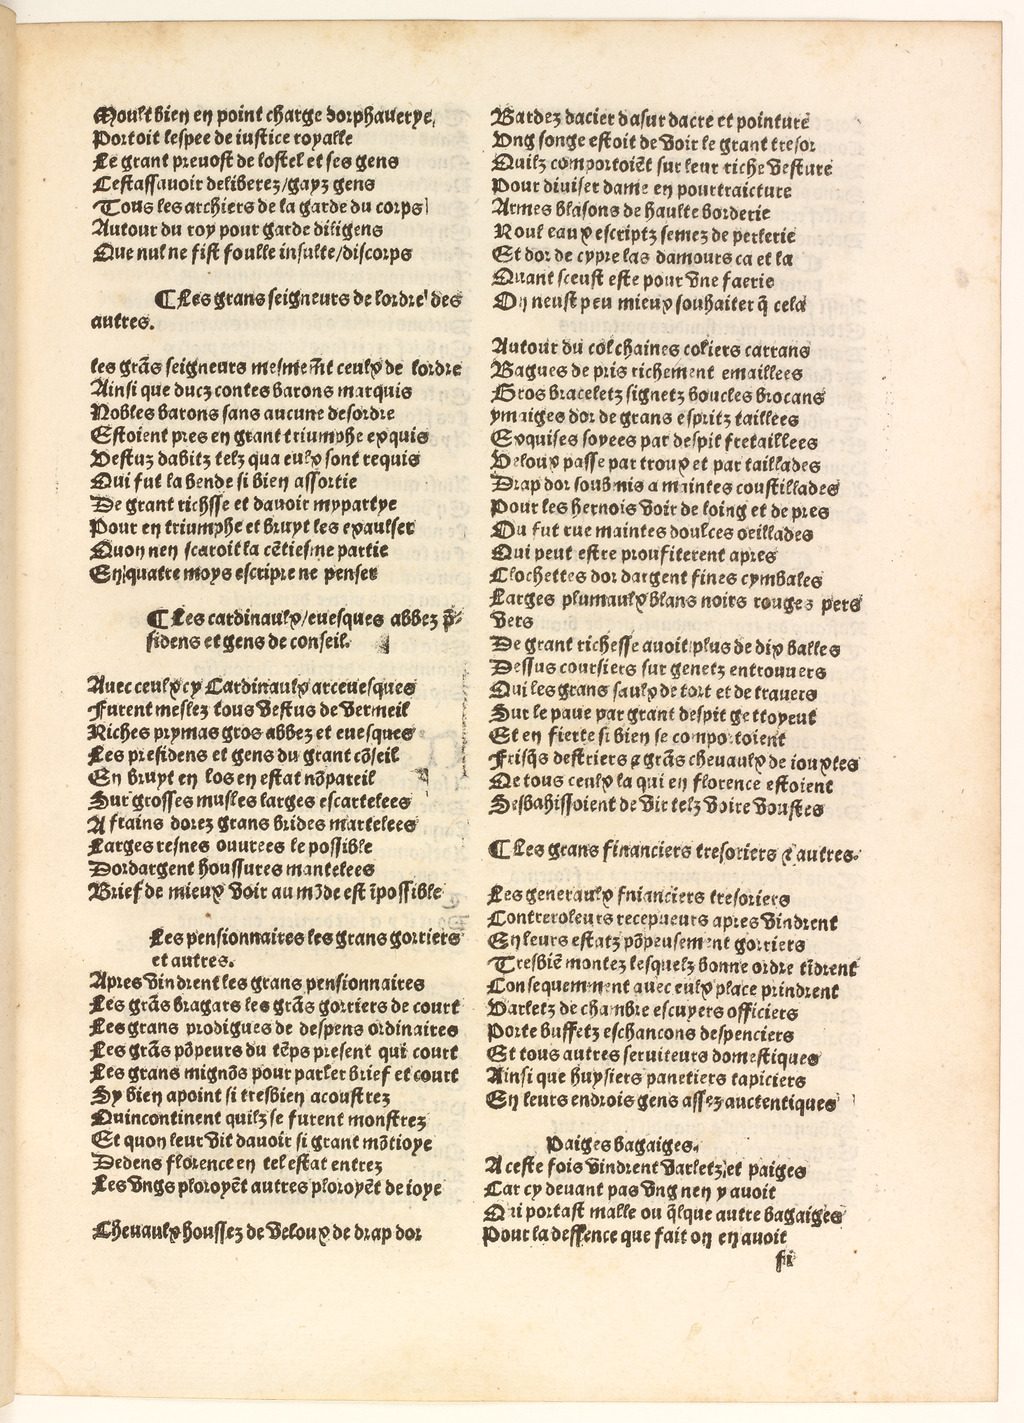 Moult bien en point charge dorphauerye,
Portoit lespee de iustice royalle
Le grant preuost de lostel et ses gens
Cestassauoir deliberez/gayz gens
Tous les archiers de la garde du corps
Autour du roy pour garde diligens
Que nul ne fist foulle insulte/discorps
¶ Les grans seigneurs de lordre des
autres.
les grãs seigneurs mesmemẽt ceulx de lordre
Ainsi que ducz contes barons marquis
Nobles barons sans aucune desordre
Estoient pres en grant triumphe exquis
Vestuz dabitz telz qua eulx sont requis
Qui fut la bende si bien assortie
De grant richsse et dauoir mypartye
Pour en triumphe et bruyt les exaulser
Quon nen scaroit la cẽtiesme partie
En quatre moys escripre ne penser
¶ Les cardinaulx/euesques abbez p̃-
sidens et gens de conseil.
Auec ceulx cy Cardinaulx arceuesques
Furent meslez tous vestus de vermeil
Riches prymas gros abbez et euesques
Les presidens et gens du grant cõseil
En bruyt en los en estat nõpareil
Sur grosses mulles larges escartelees
A frains dorez grans brides martelees
Larges resnes ouurees le possible
Dordargent houssures mantelees
Brief de mieux voir au mõde est ĩpossible
Les pensionnaires les grans gorriers
et autres.
Apres vindrent les grans pensionnaires
Les grãs bragars les grãs gorriers de court
Les grans prodigues de despens ordinaires
Les grãs põpeurs du tẽps present qui court
Les grans mignõs pour parler brief et court
Sy bien apoint si tresbien acoustrez
Quincontinent quilz se furent monstrez
Et quon leur vit dauoir si grant mõtioye
Dedens florence en tel estat entrez
Les vngs ploroyẽt autres ploroyẽt de ioye
Cheuaulx houssez de veloux de drap dor
Bardez dacier dasur dacre et pointure
Vng songe estoit de voir le grant tresor
Quilz comportoiẽt sur leur riche vesture
Pour diuiser dame en pourtraicture
Armes blasons de haulte borderie
Roul eaux escriptz semez de perlerie
Et dor de cypre las damours ca et la
Quant sceust este pour vne faerie
On neust peu mieux souhaiter q̃ cela
Autour du col chaines coliers carrans
Bagues de pris richement emaillees
Gros braceletz signetz boucles brocans
ymaiges dor de grans espritz taillees
Exquises soyees par despit fretaillees
Veloux passe par troux et par taillades
Drap dor soubmis a maintes coustillades
Pour les hernois voir de loing et de pres
Ou fut rue maintes doulces oeillades
Qui peut estre proufiterent apres
Clochettes dor dargent fines cymbales
Larges plumaulx blans noirs rouges pers
vers
De grant richesse auoit plus de dix balles
Dessus coursiers sur genetz entrouuers
Qui les grans saulx de tort et de trauers
Sur le paue par grant despit gettoyent
Et en fierte si bien se compo.toient
Frisq̃s destriers & grãs cheuaulx de iouxtes
De tous ceulx la qui en florence estoient
Sesbahissoient de vir telz voire voustes
¶ Les grans financiers tresoriers & autres.
Les generaulx fnianciers tresoriers
Contreroleurs recepueurs apres vindrent
En leurs estatz põpeusement gorriers
Tresbiẽ montez lesquelz bonne ordre tĩdrent
Consequemment auec eulx place prindrent
Varletz de chambre escuyers officiers
Porte buffetz eschancons despenciers
Et tous autres seruiteurs domestiques
Ainsi que huysiers panetiers tapiciers
En leurs endrois gens assez auctentiques
Paiges bagaiges.
A ceste fois vindrent varletz et paiges
Car cy deuant pas vng nen y auoit
Qui portast malle ou q̃lque autre bagaiges
Pour la deffence que fait on en auoit